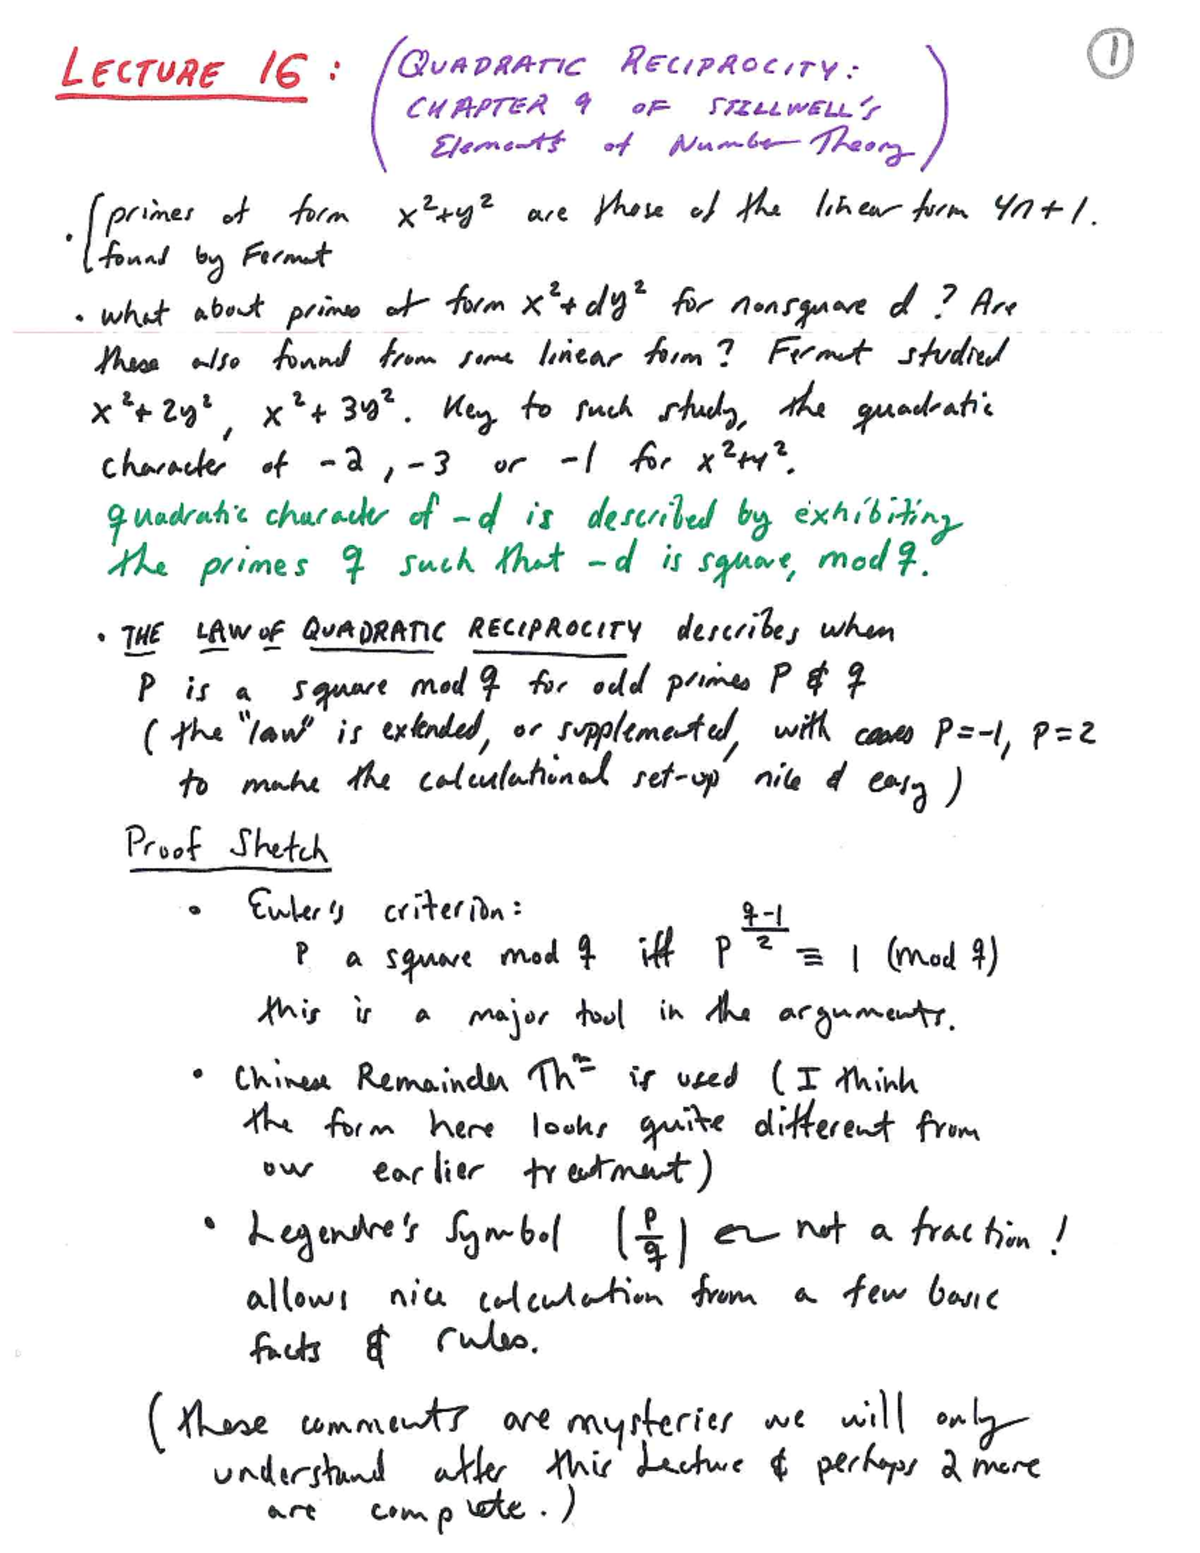 LECTURE 16: (QUADRATIC RECIPROCITY: ①
CHAPTER 9 OF STILLWELL'S
Elements of Number Theory)
• { primes of form x²+y² are those of the linear form 4n+1.
found by Fermat
• what about primes of form x²+dy² for nonsquare d? Are
these also found from some linear form? Fermat studied
x²+2y², x²+3y². Key to such study, the quadratic
character of -2, -3 or -1 for x²+y².
quadratic character of -d is described by exhibiting
the primes q such that -d is square, mod q.
• THE LAW OF QUADRATIC RECIPROCITY describes when
P is a square mod q for odd primes P & q
(the "law" is extended, or supplemented, with cases P=-1, P=2
to make the calculational set-up nice & easy)
Proof Sketch
• Euler's criterion:
P a square mod q iff P^{\frac{q-1}{2}} ≡ 1 (mod q)
this is a major tool in the arguments.
• Chinese Remainder Thᵐ is used (I think
the form here looks quite different from
our earlier treatment)
• Legendre's Symbol (p/q) ← not a fraction!
allows nice calculation from a few basic
facts & rules.
(these comments are mysteries we will only
understand after this Lecture & perhaps 2 more
are complete.)